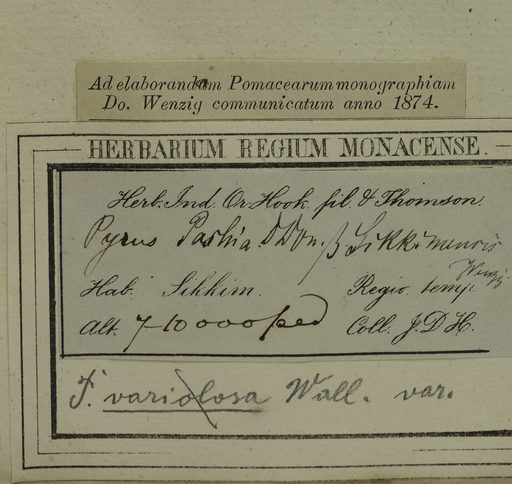 Ad elaborandum Pomacearum monographiam
Do. Wenzig communicatum anno 1874.
HERBARIUM REGIUM MONACENSE.
Herb. Ind. Or. Hook. fil. & Thomson.
Pyrus Pashia. D Don. β Sikkimensis
Wenzig
Hab. Sikkim. Regio. temp.
Alt. 7-10000 ped Coll. J. D. H.
P. variolosa Wall. var.